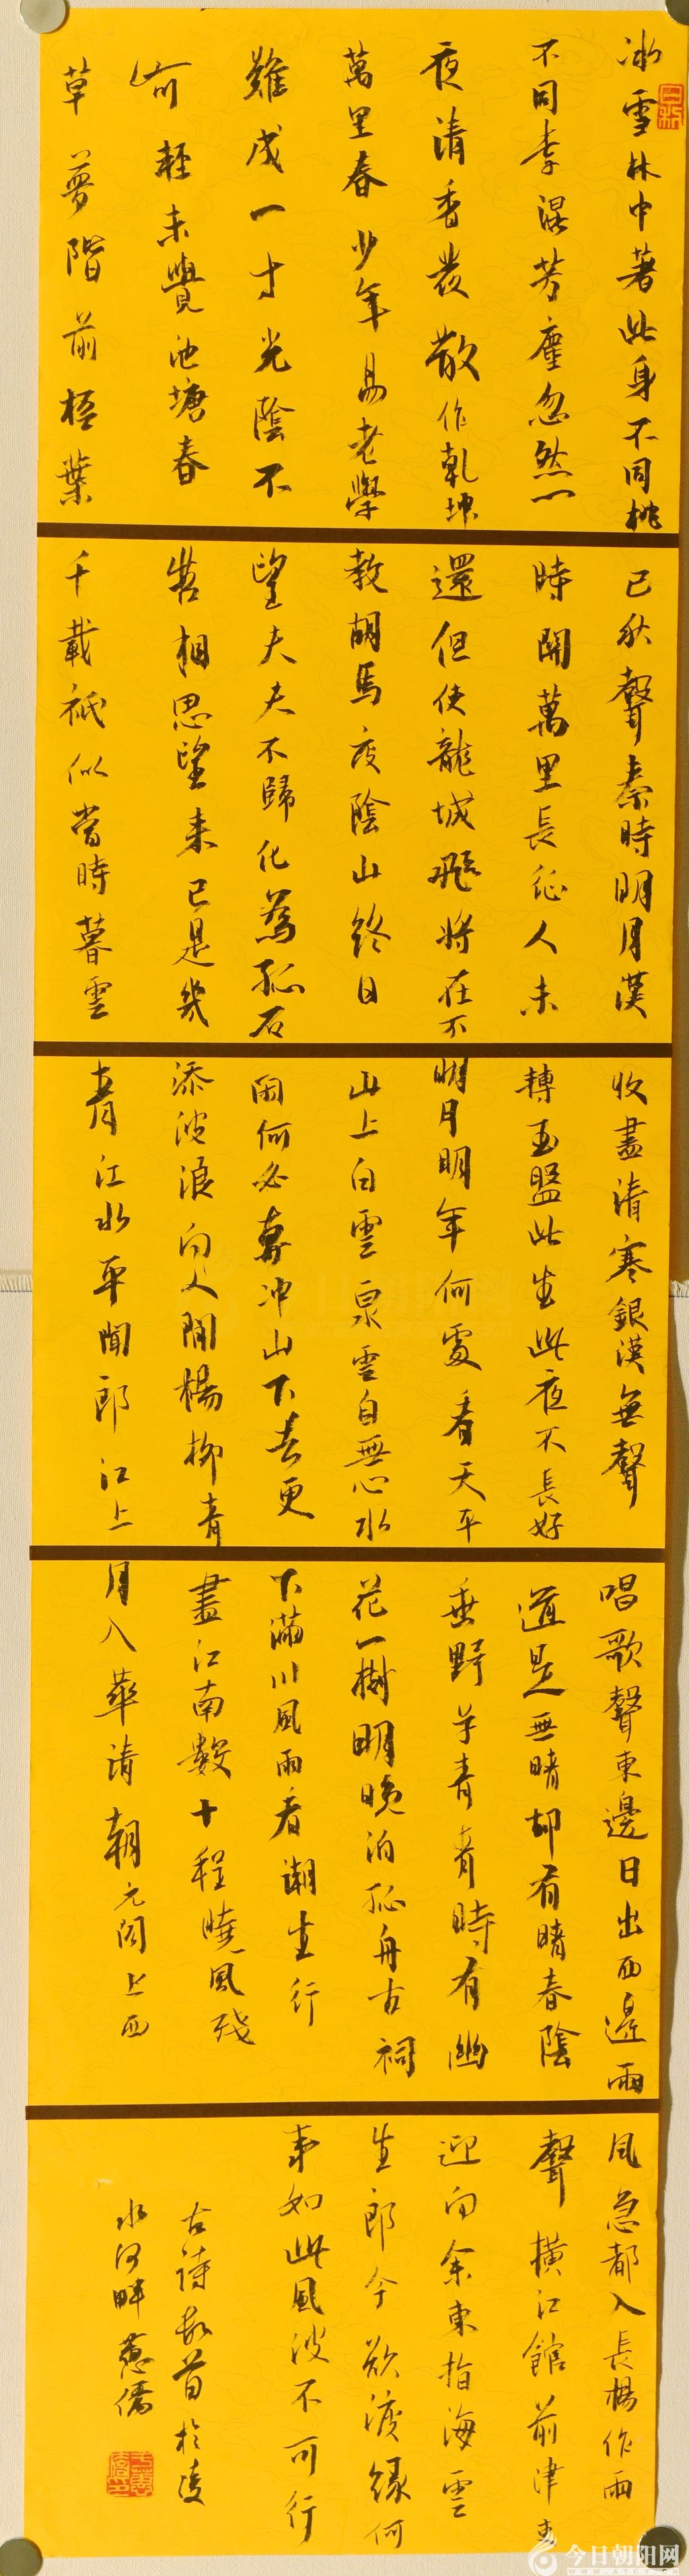 冰雪林中著此身不同桃
不同李混芳塵忽然一
夜清香發散作乾坤
萬里春少年易老學
難成一寸光陰不
可輕未覺池塘春
草夢階前梧葉
已秋聲秦時明月漢
時關萬里長征人未
還但使龍城飛將在不
教胡馬度陰山終日
望夫夫不歸化為孤石
苦相思望來已是幾
千載祗似當時暮雲
收盡清寒銀漢無聲
轉玉盤此生此夜不長好
明月明年何處看天平
山上白雲泉雲自無心水
閑何必奔冲山下去更
添波浪向人間楊柳青
青江水平聞郎江上
唱歌聲東邊日出西邊雨
道是無晴却有晴春陰
垂野草青青時有幽
花一樹明晚泊孤舟古祠
下滿川風雨看潮生行
盡江南數十程曉風殘
月入華清朝元閣上西
風急都入長楊作雨
聲橫江館前津吏
迎向余東指海雲
生郎今欲渡緣何
事如此風波不可行
古詩數首於凌
水河畔蕙儒
今日朝阳网